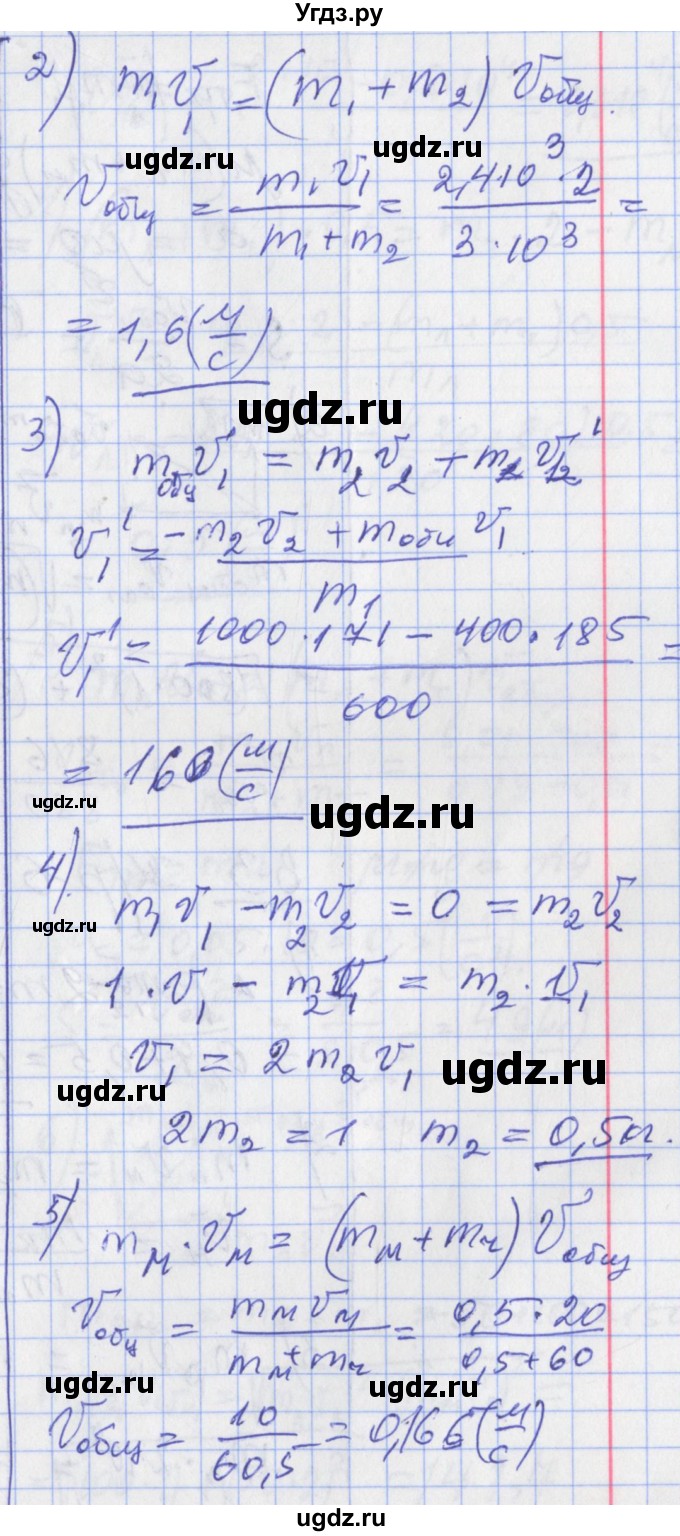 Угдз.ру
2) m₁v₁ = (m₁ + m₂) Vобщ.
ugdz.ru ugdz.ru
Vобщ = m₁v₁ / m₁ + m₂ = 2,4·10³·2 / 3·10³ =
= 1,6 (м/с)
ugdz.ru
3) mобщ v₁ = m₂v₂ + m₂ v₁₂'
v₁' = -m₂v₂ + mобщ v₁ / m₁
v₁' = 1000·171 - 400·185 / 600 =
= 160 (м/с)
ugdz.ru ugdz.ru
4) m₁v₁ - m₂v₂ = 0 = m₂v₂
ugdz.ru
1·v₁ - m₂v₁ = m₂·1v₁
v₁ = 2m₂v₁
ugdz.ru ugdz.ru
2m₂ = 1 m₂ = 0,5 кг.
5) mм·vм = (mм + mч) Vобщ
Vобщ = mмvм / mм + mч = 0,5·20 / 0,5+60
ugdz.ru ugdz.ru
Vобщ = 10 / 60,5 = 0,166 (м/с)
ugdz.ru